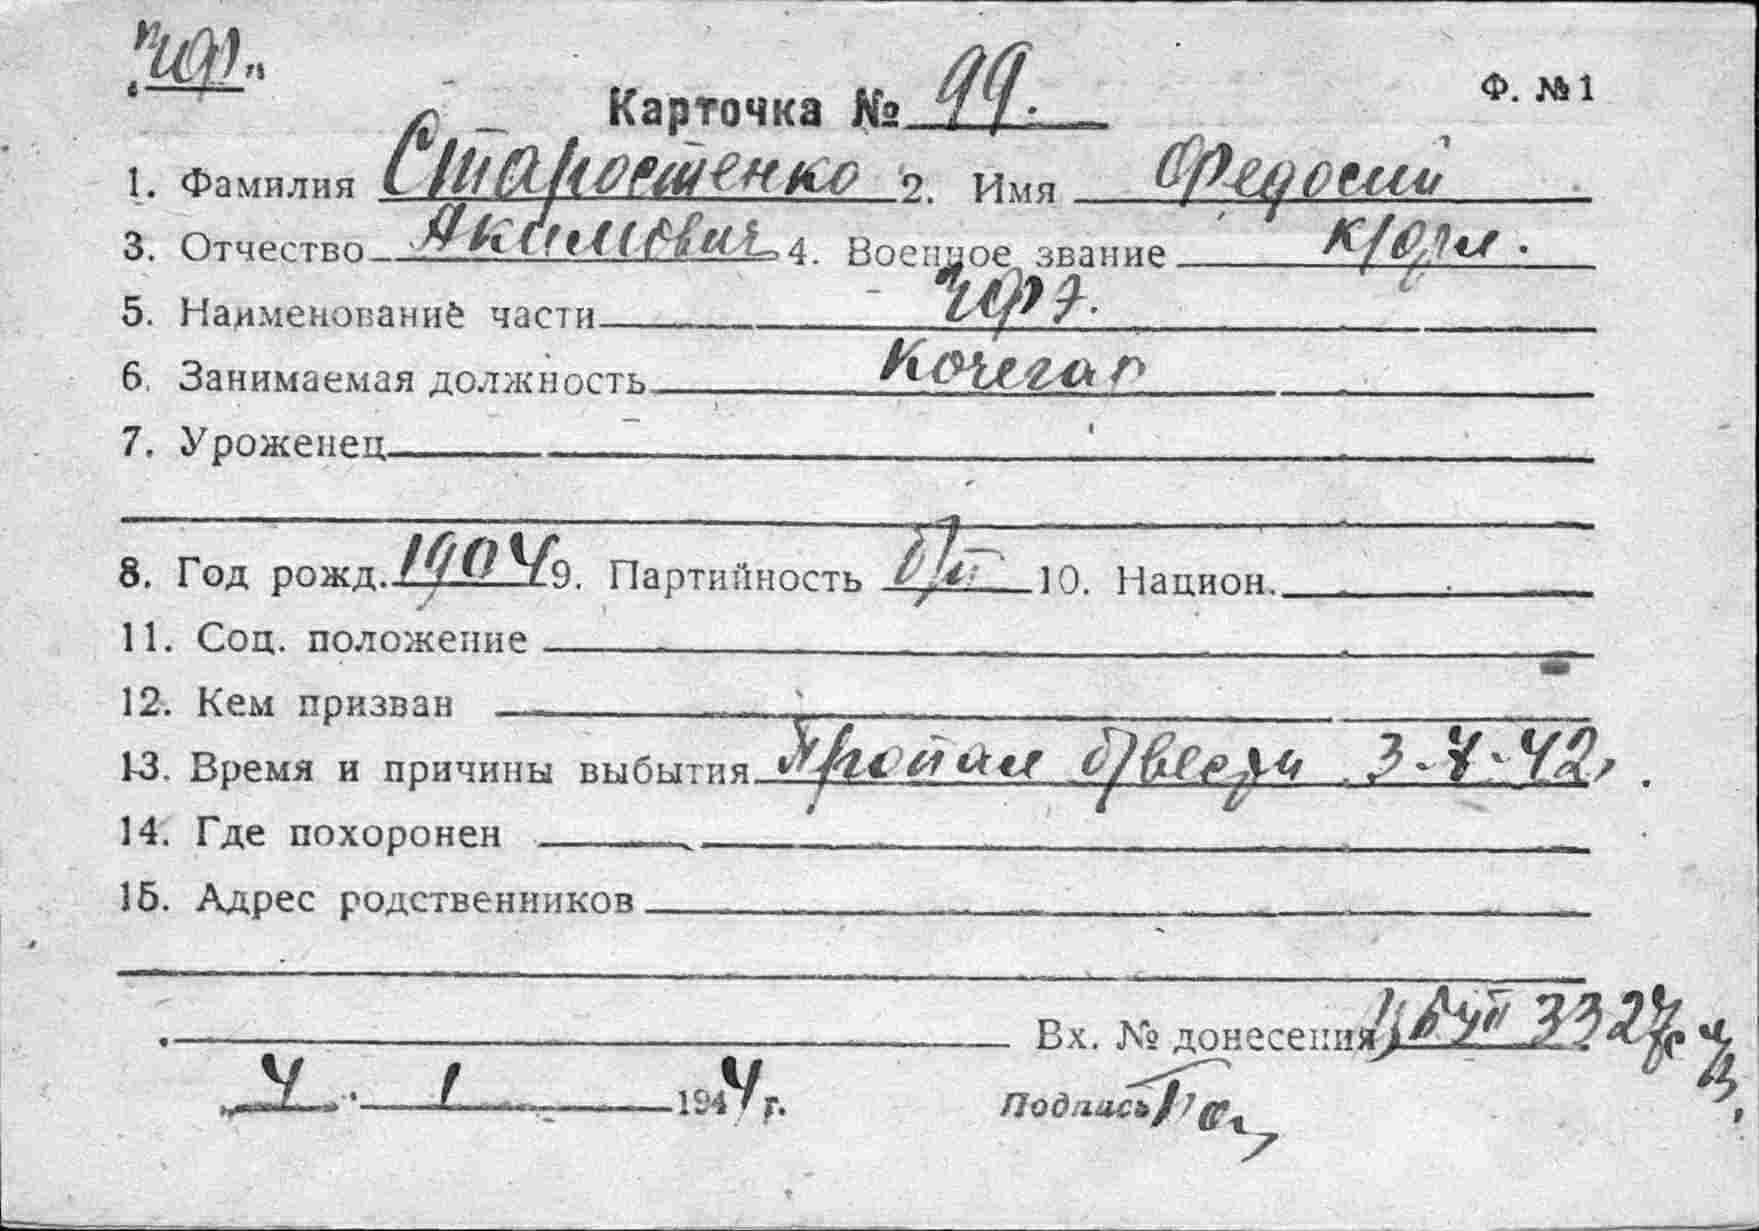 "ЧФ"
Карточка № 99.
Ф. №1
1. Фамилия Старостенко 2. Имя Федосий
3. Отчество Акимович 4. Военное звание
5. Наименование части ЧФ
6. Занимаемая должность Кочегар
7. Уроженец
8. Год рожд. 1904 9. Партийность б/п 10. Национ.
11. Соц. положение
12. Кем призван
13. Время и причины выбытия Пропал б/вести 3-7-42
14. Где похоронен
15. Адрес родственников
Вх. № донесения 3327
4. 1 1944 г.
Подпись